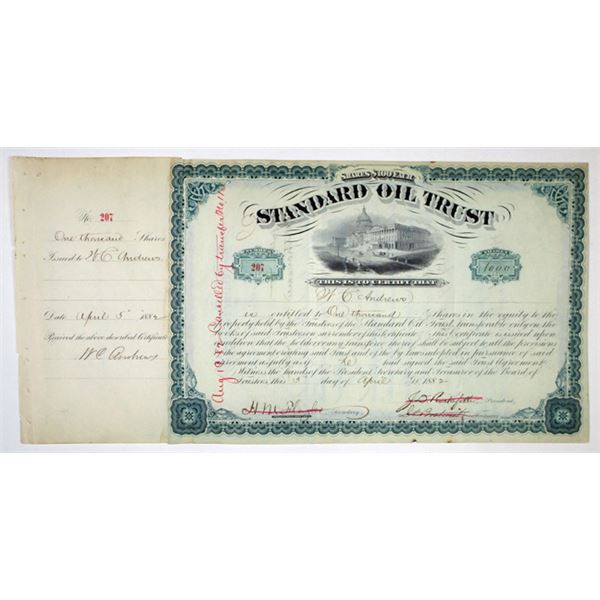 No. 207
One thousand Shares
Issued to W. C. Andrews
Date April 5" 1882
Received the above described Certificate
W C Andrews
SHARES $100 EACH
STANDARD OIL TRUST
NUMBER
207
1000
THIS IS TO CERTIFY THAT
W. C. Andrews
is entitled to One thousand Shares in the equity to the
property held by the Trustees of the Standard Oil Trust, transferable only on the
books of said Trustees on surrender of this certificate. This Certificate is issued upon
condition that the holder or any transferee thereof shall be subject to all the provisions
of the agreement creating said Trust and of the by laws adopted in pursuance of said
agreement as fully as if he had signed the said Trust Agreement
Witness the hands of the President Secretary and Treasurer of the Board of
Trustees this 5 day of April 1882
Secretary
President
Aug 19 '82 Cancelled by transfer No.